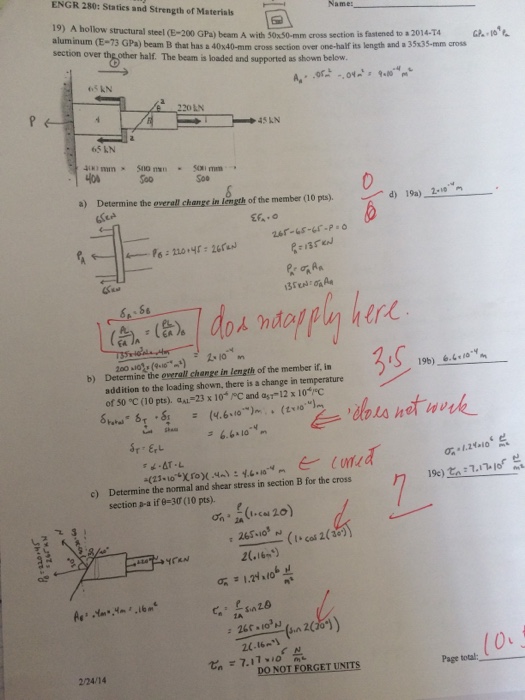 ENGR 280: Statics and Strength of Materials
Name:
19) A hollow structural steel (E=200 GPa) beam A with 50x50-mm cross section is fastened to a 2014-T4
aluminum (E=73 GPa) beam B that has a 40x40-mm cross section over one-half its length and a 35x35-mm cross
section over the other half. The beam is loaded and supported as shown below.
65 kN
220 kN
P
A
B
a
a
45 kN
65 kN
400 mm
500 mm
500 mm
400
500
500
δ
a) Determine the overall change in length of the member (10 pts).
0
d) 19a) 2×10⁻⁴ m
65kN
ΣFx=0
265-65-65-P=0
PA
PB = 220+45 = 265kN
PA=135kN
PA=σA AA
135kN=σA AA
65kN
δA=δB
(PL/EA)A = (PL/EA)B
does not apply here.
= 2×10⁻⁴ m
3.5
19b) 6.6×10⁻⁴ m
b) Determine the overall change in length of the member if, in
addition to the loading shown, there is a change in temperature
of 50 °C (10 pts). αAL=23 x 10⁻⁶/°C and αST=12 x 10⁻⁶/°C
δtotal = δT + δS = (4.6×10⁻⁴)m + (2×10⁻⁴)m
does not work
= 6.6×10⁻⁴ m
δT = ETL
= α·ΔT·L
=(23×10⁻⁶)(50)(.4m) = 4.6×10⁻⁴ m
correct
σn=1.24×10⁶ N/m²
7
19c) τn=7.17×10⁵ N/m²
c) Determine the normal and shear stress in section B for the cross
section a-a if θ=30° (10 pts).
σn = P/2A (1+cos2θ)
= 265×10³ N / 2(.16m²) (1+cos2(30°))
45kN
σn = 1.24×10⁶ N/m²
AB = .4m·.4m = .16m²
τn = P/2A sin2θ
= 265×10³ N / 2(.16m²) (sin2(30°))
τn = 7.17×10⁵ N/m²
DO NOT FORGET UNITS
Page total:
2/24/14